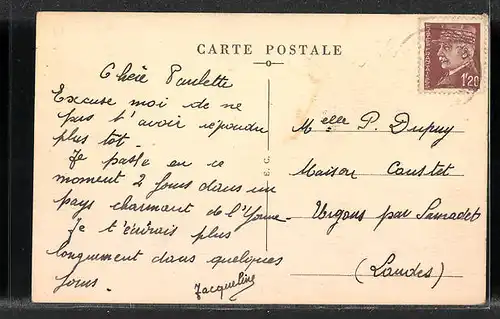 CARTE POSTALE
Chère Paulette
Excuse moi de ne
pas t'avoir répondu
plus tôt.
Je passe en ce
moment 2 jours dans un
pays charmant de l'Yonne
Je t'écrirais plus
longuement dans quelques
jours.
Jacqueline
E.C.
1'20
Melle P. Dupuy
Maison Coustet
Urgons par Samadet
(Landes)